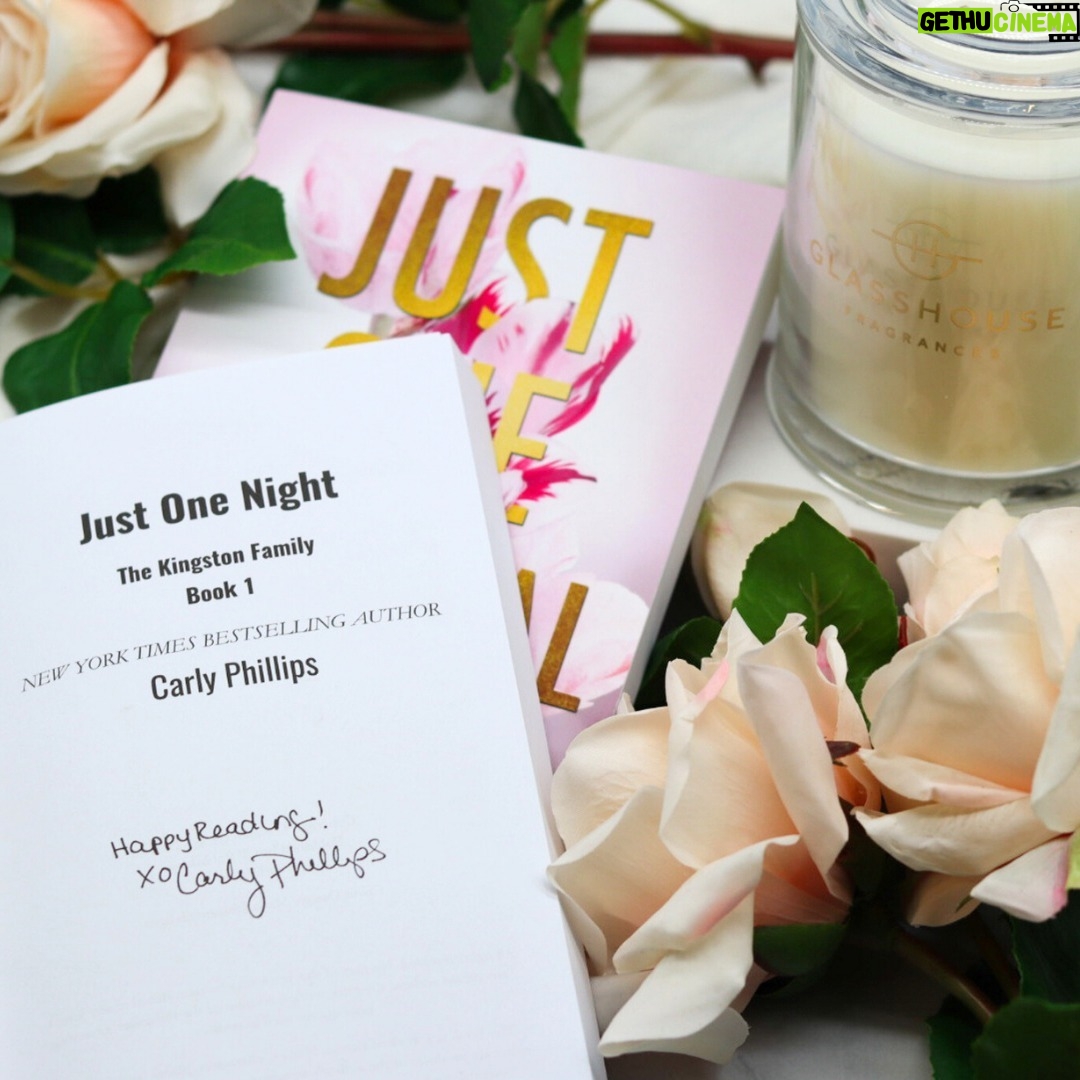 GETHUCINEMA
JUST
GLASSHOUSE
FRAGRANCES
Just One Night
The Kingston Family
Book 1
NEW YORK TIMES BESTSELLING AUTHOR
Carly Phillips
Happy Reading!
XO Carly Phillips